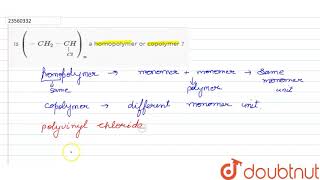 23560332
Is ( - CH₂ - CH - )ₙ a homopolymer or copolymer ?
|
Cl
homopolymer → monomer + monomer → same
same polymer monomer unit
copolymer → different monomer unit
polyvinyl chloride
doubtnut